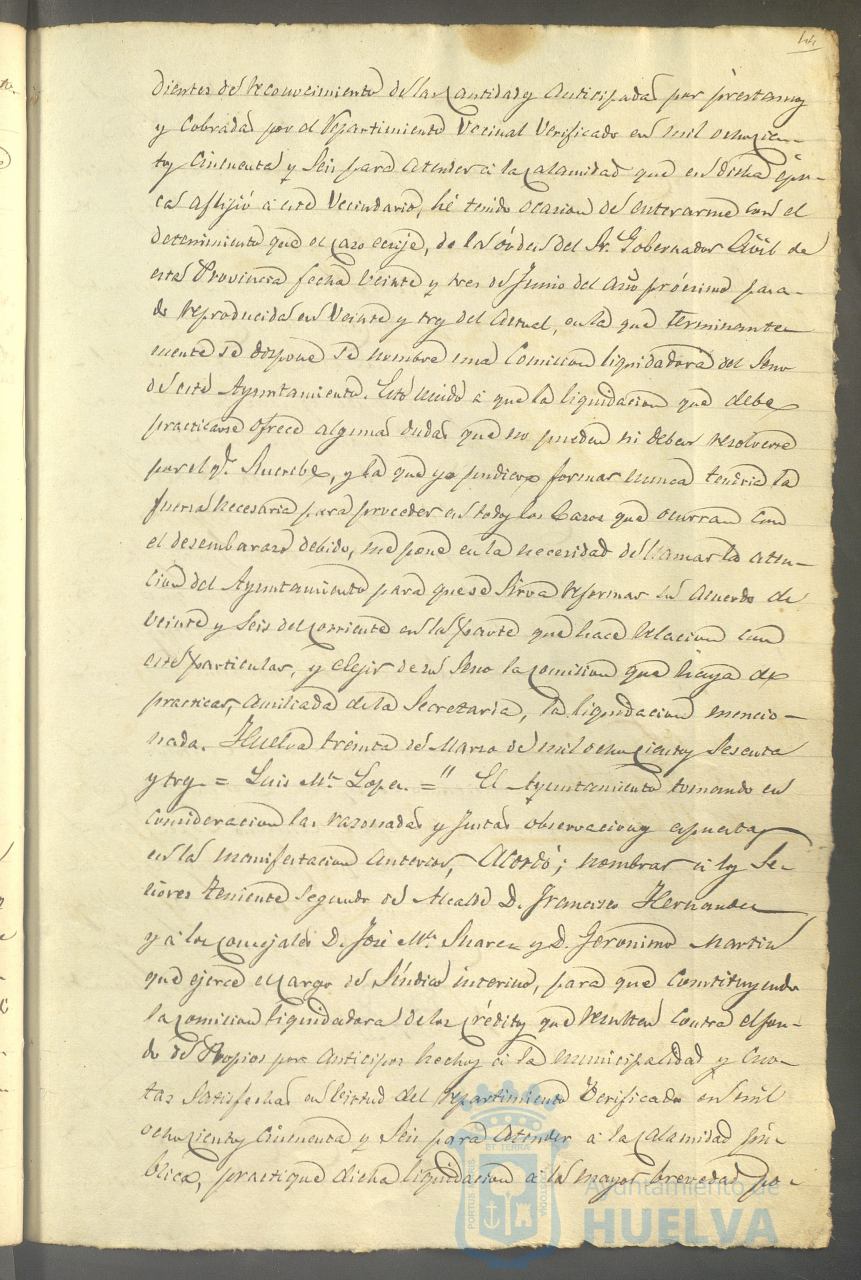 44
dientes del reconocimiento de las cantidades anticipadas por prestamos
y cobradas por el repartimiento vecinal verificado en mil ochocien-
tos cincuenta y seis para atender á la calamidad que en dicha épo-
ca aflijió á este Vecindario, hé tenido ocasion de enterarme con el
detenimiento que el caso ecsije, de la órden del Sr. Gobernador Civil de
esta Provincia fecha veinte y tres de Junio del año prócsimo pasa-
do reproducida en veinte y tres del actual, en la que terminante-
mente se dispone se nombre una Comision liquidadora del seno
de este Ayuntamiento. Esto unido á que la liquidacion que debe
practicarse ofrece algunas dudas que no pueden ni deben resolverse
por el qe. suscribe, y la que yo pudiera formar nunca tendria la
fuerza necesaria para proceder en todos los casos que ocurran con
el desembarazo debido, me pone en la necesidad de llamar la aten-
cion del Ayuntamiento para que se sirva reformar su acuerdo de
veinte y seis del corriente en la parte que hace relacion con
este particular, y elejir de su seno la comision que haya de
practicar, ausiliada de la Secretaria, la liquidacion mencio-
nada. Huelva treinta de Marzo de mil ochocientos sesenta
y tres = Luis Ma. Lopez = " El Ayuntamiento tomando en
consideracion las razonadas y justas observaciones espuestas
en la manifestacion anterior, acordó; nombrar á los Se-
ñores Teniente segundo de Alcalde D. Francisco Hernandez
y á los concejales D. José Ma. Suarez y D. Geronimo Martin
que ejerce el cargo de Síndico interino, para que constituyendo
la comision liquidadora de los créditos que resulten contra el fon-
do de Propios por anticipos hechos á la municipalidad y cuo-
tas satisfechas en virtud del repartimiento verificado en mil
ochocientos cincuenta y seis para atender a la calamidad pú-
blica, practique dicha liquidacion á la mayor brevedad po-
PORTUS MARIS
ET TERRAE
CUSTODIA
Ayuntamiento de
HUELVA